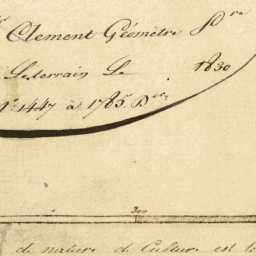 Clement Géomètre
Le terrain Le 1830
N° 1447 à 1785
300
de nature de Culture est